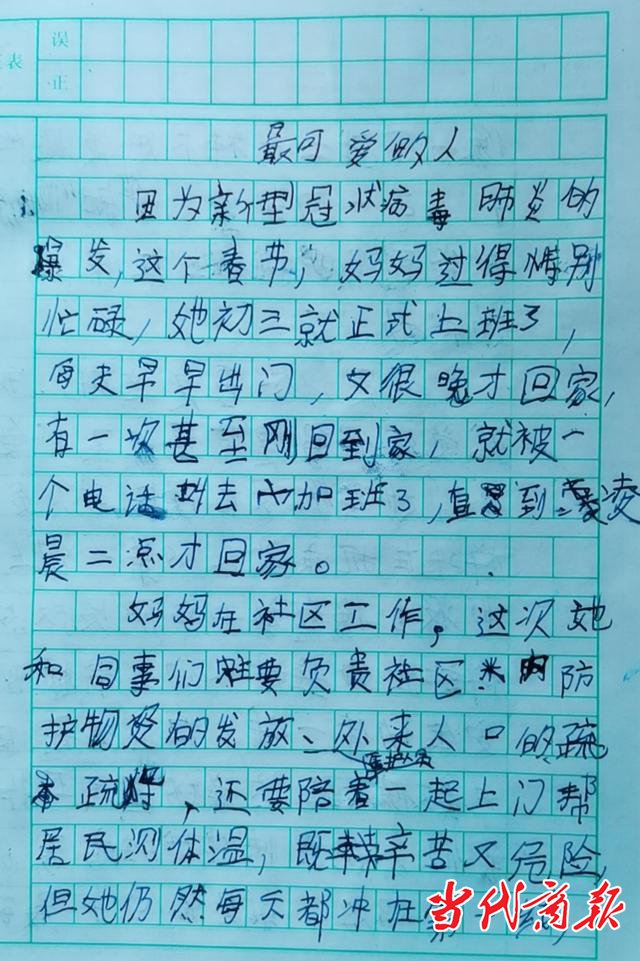 误
表
正
最可爱的人
因为新型冠状病毒肺炎的
爆发,这个春节,妈妈过得特别
忙碌,她初三就正式上班了,
每天早早出门,又很晚才回家,
有一次甚至刚回到家,就被一
个电话叫去加班了,直到凌
晨二点才回家。
妈妈在社区工作,这次她
和同事们主要负责社区内防
护物资的发放、外来人口的疏
医护人员
疏散,还要陪着一起上门帮
居民测体温,既辛苦又危险,
但她仍然每天都冲在第一线,
当代商报